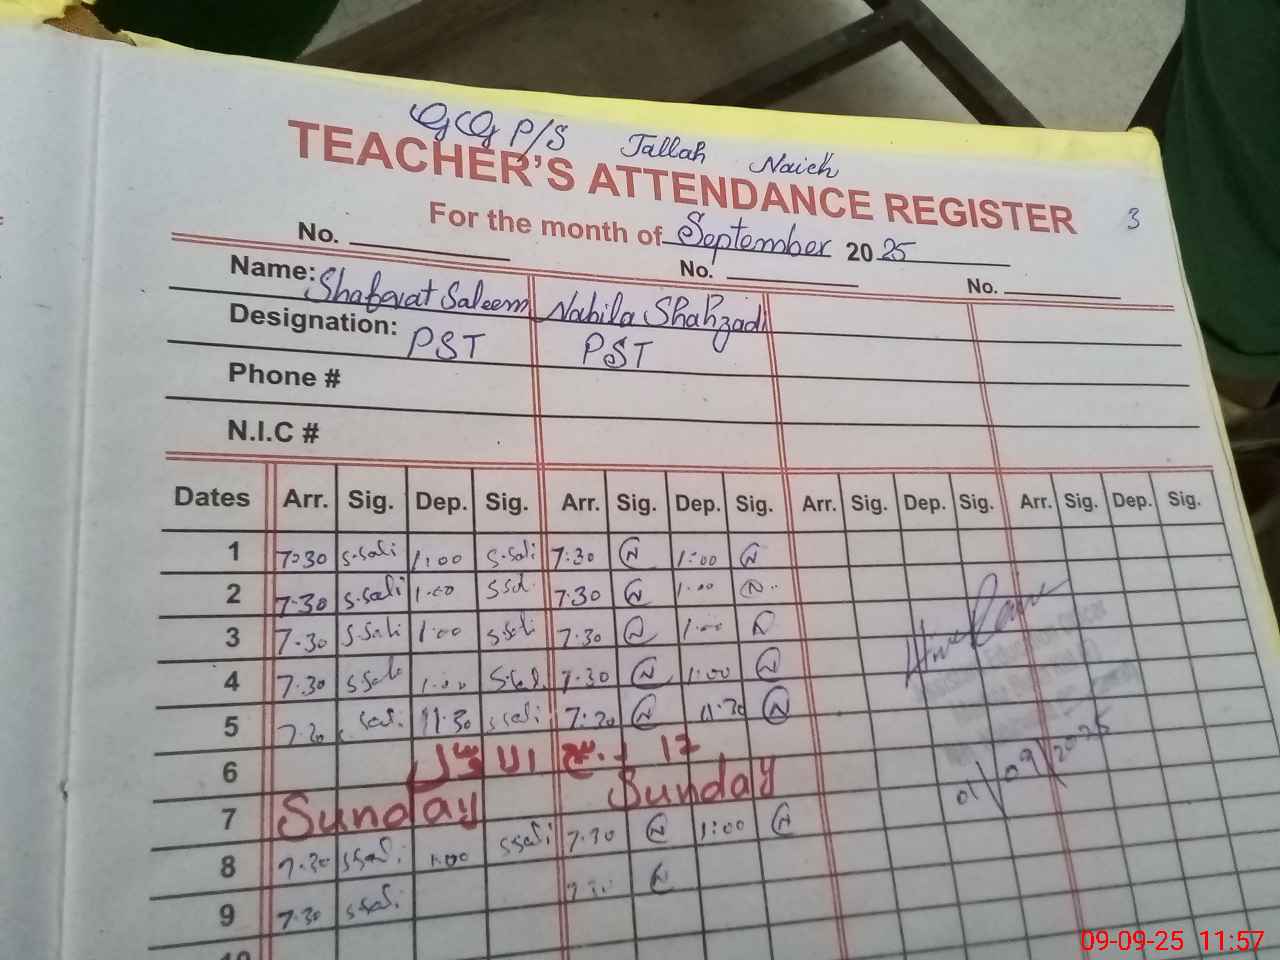 GCG P/S Jallah Naich
TEACHER'S ATTENDANCE REGISTER 3
For the month of September 2025
No. No. No.
Name: Shafqat Saleem Nabila Shahzadi
Designation: PST PST
Phone #
N.I.C #
Dates Arr. Sig. Dep. Sig. Arr. Sig. Dep. Sig. Arr. Sig. Dep. Sig. Arr. Sig. Dep. Sig.
1 7:30 S.Sali 1:00 S.Sali 7:30 N 1:00 N
2 7.30 S.Sali 1:00 SSal. 7:30 N 1:00 N
3 7.30 S.Sali 1:00 SSali 7.30 N 1:00 N
4 7:30 SSali 1:00 S.Sal. 7.30 N 1:00 N
5 7.30 Sali 11:30 SSali 7:30 N 11:30 N
6 ربیع الاول 12
7 Sunday Sunday
8 7.30 SSali 1:00 SSali 7.30 N 1:00 N
9 7.30 SSali 7:30 N
10
01/09/2025
09-09-25 11:57